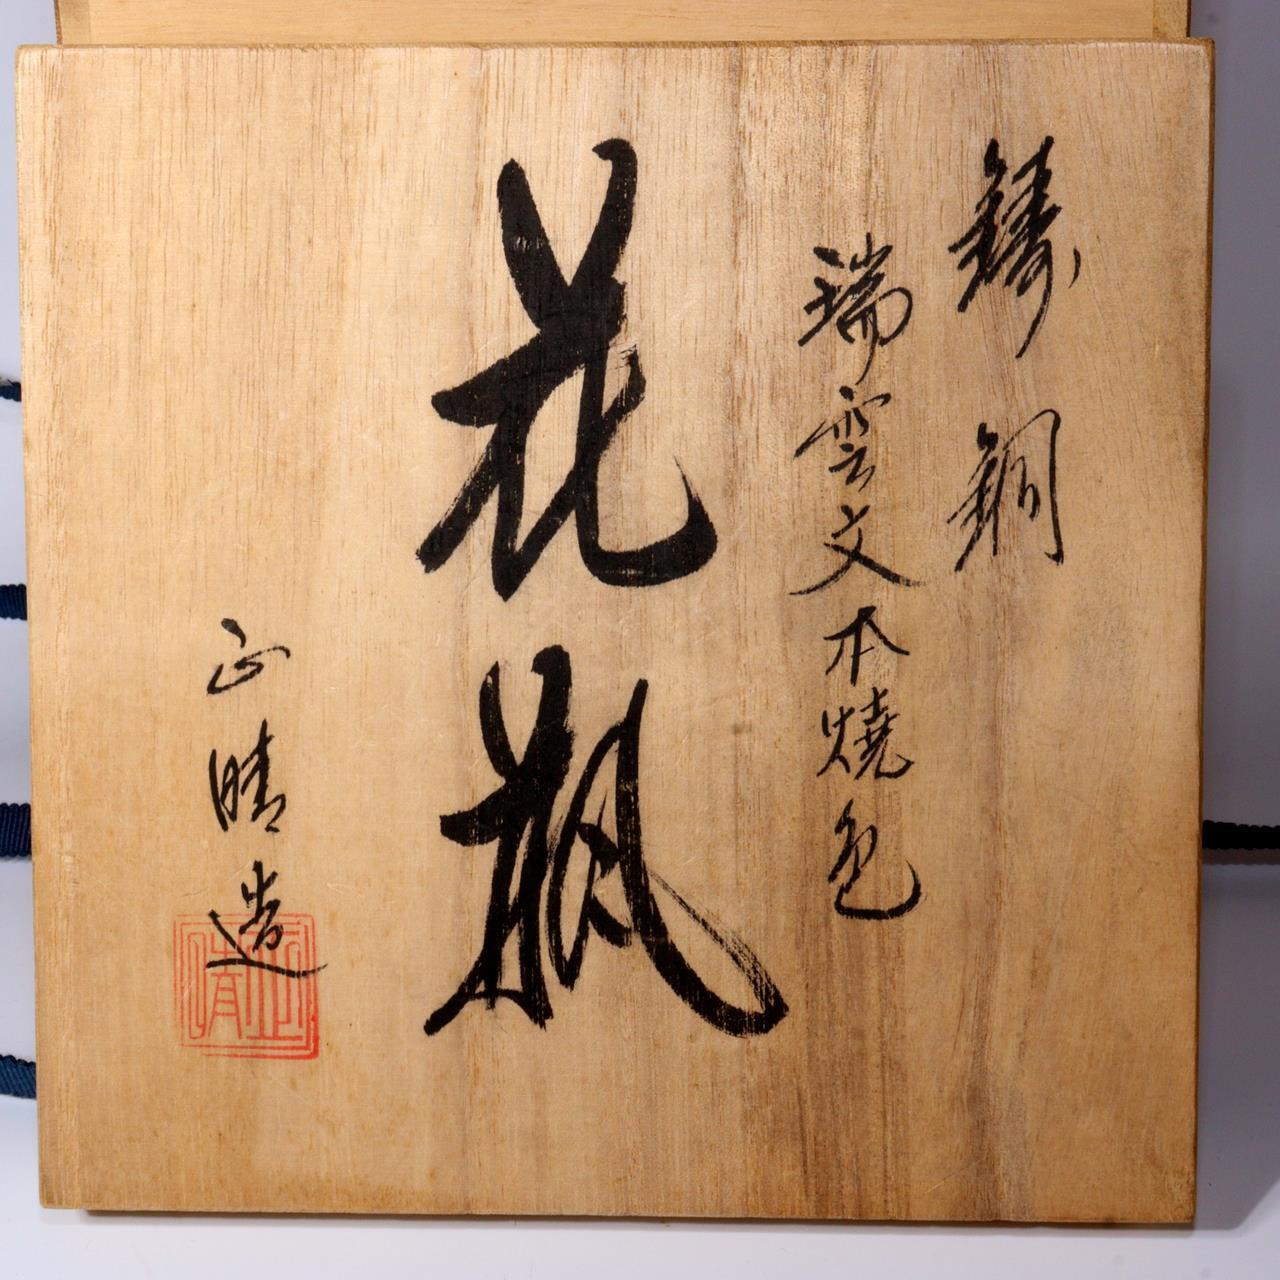 鋳銅
瑞雲文本焼色
花瓶
正晴造
正晴